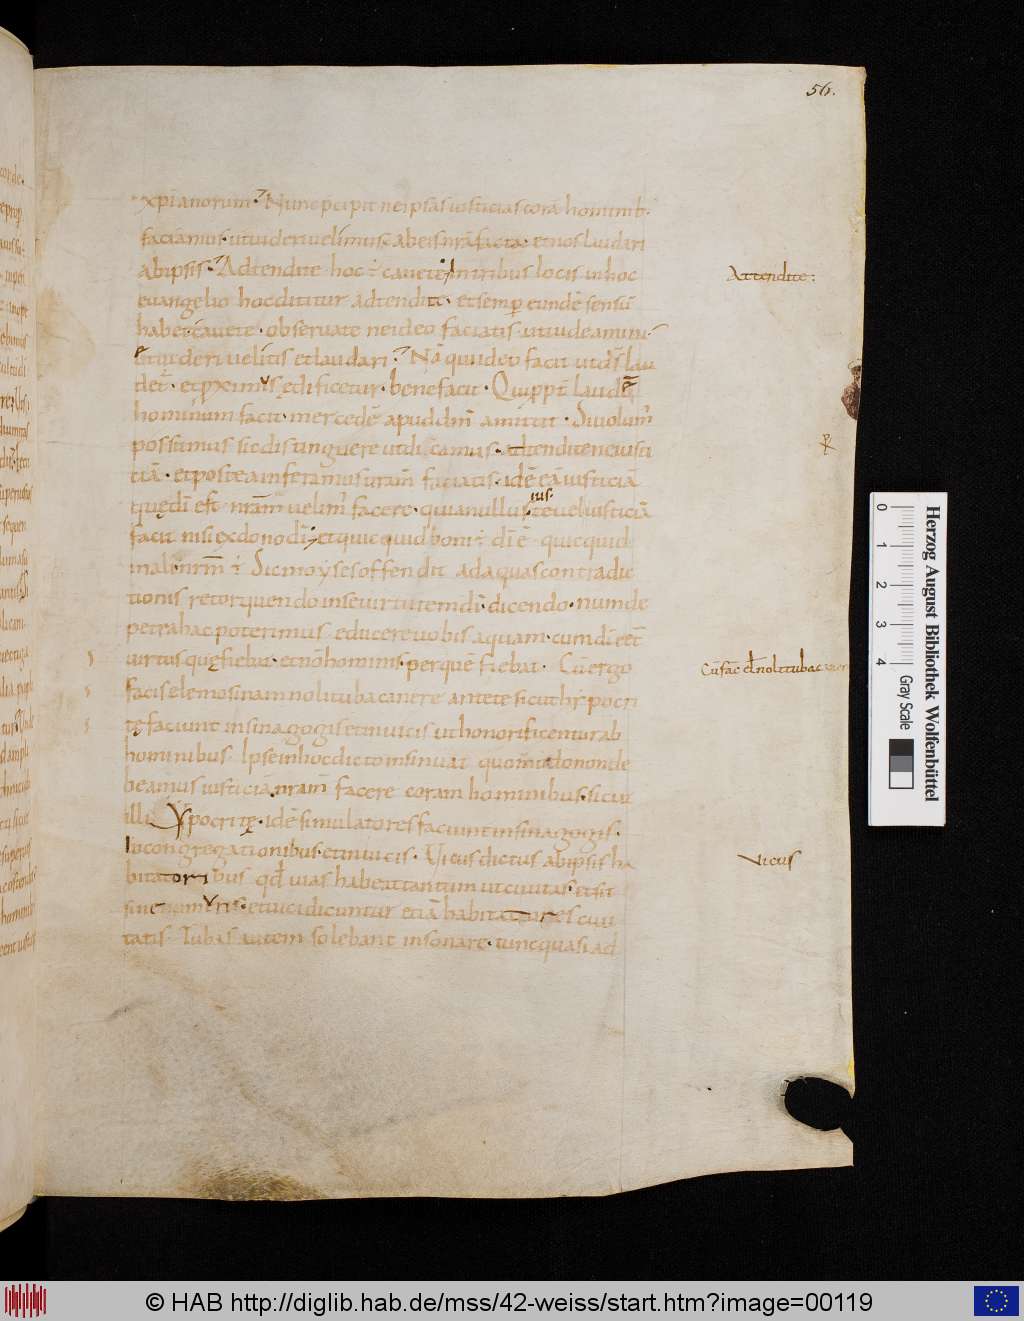 56.
xpianorum. Nunc p̄cipit ne ipsas iusticias corā hominib·
faciamus· ut uideri uelimus ab eis nr̄a facta· et nos laudari
ab ipsis. Adtendite hoc ÷ cauete. In tribus locis in hoc
Attendite:
euangelio hoc dititur adtendite· et semp eundē sensū
habet· cauete· obseruate ne ideo faciatis· ut uideamini
et uideri uelitis et laudari. Nā qui ideo facit ut ds̄ lau
det̄· et proximus ędificetur· bene facit· Qui ppt̄ laudē
hominum facit· mercedē apud dm̄ amittit· Si uolum̄
possumus sic distinguere ut dicamus· adtendite ne iusti
tiā· et postea inferamus uram̄ faciatis· idē eā iusticiā
quę dī est· nr̄am uelim̄ facere· quia nullus
ius·
te uel iusticiā
facit nisi ex dono dī· et quicquid boni ÷ dī ē· quicquid
mali nrm̄ ÷ Sic moyses offendit ad aquas contradic
tionis retorquendo in se uirtutem dī· dicendo· num de
petra hac poterimus educere uobis aquam· cum dī eēt
uirtus quę fiebat· et nō hominis per quē fiebat· Cū ergo
Cū fac̄ el̄ noli tuba canere
facis elemosinam noli tuba canere ante te sicut hypocri
tę faciunt in sinagogis et in uicis ut honorificentur ab
hominibus· Ipse in hoc dicto insinuat quom̄do non de
beamus iusticiā nram̄ facere coram hominibus· sicut
illi Ypocritę· idē simulatores faciunt in sinagogis·
In congregationibus· et in uicis· Vicus dictus ab ipsis ha
Vicus
bitatoribus qd̄ uias habeat tantum ut ciuitas· et sit
sine muris· et uici dicuntur etiā habitatores ciui
tatis· Tubas autem solebant insonare· tunc quasi ad
Herzog August Bibliothek Wolfenbüttel
0 1 2 3 4
Gray Scale
© HAB http://diglib.hab.de/mss/42-weiss/start.htm?image=00119